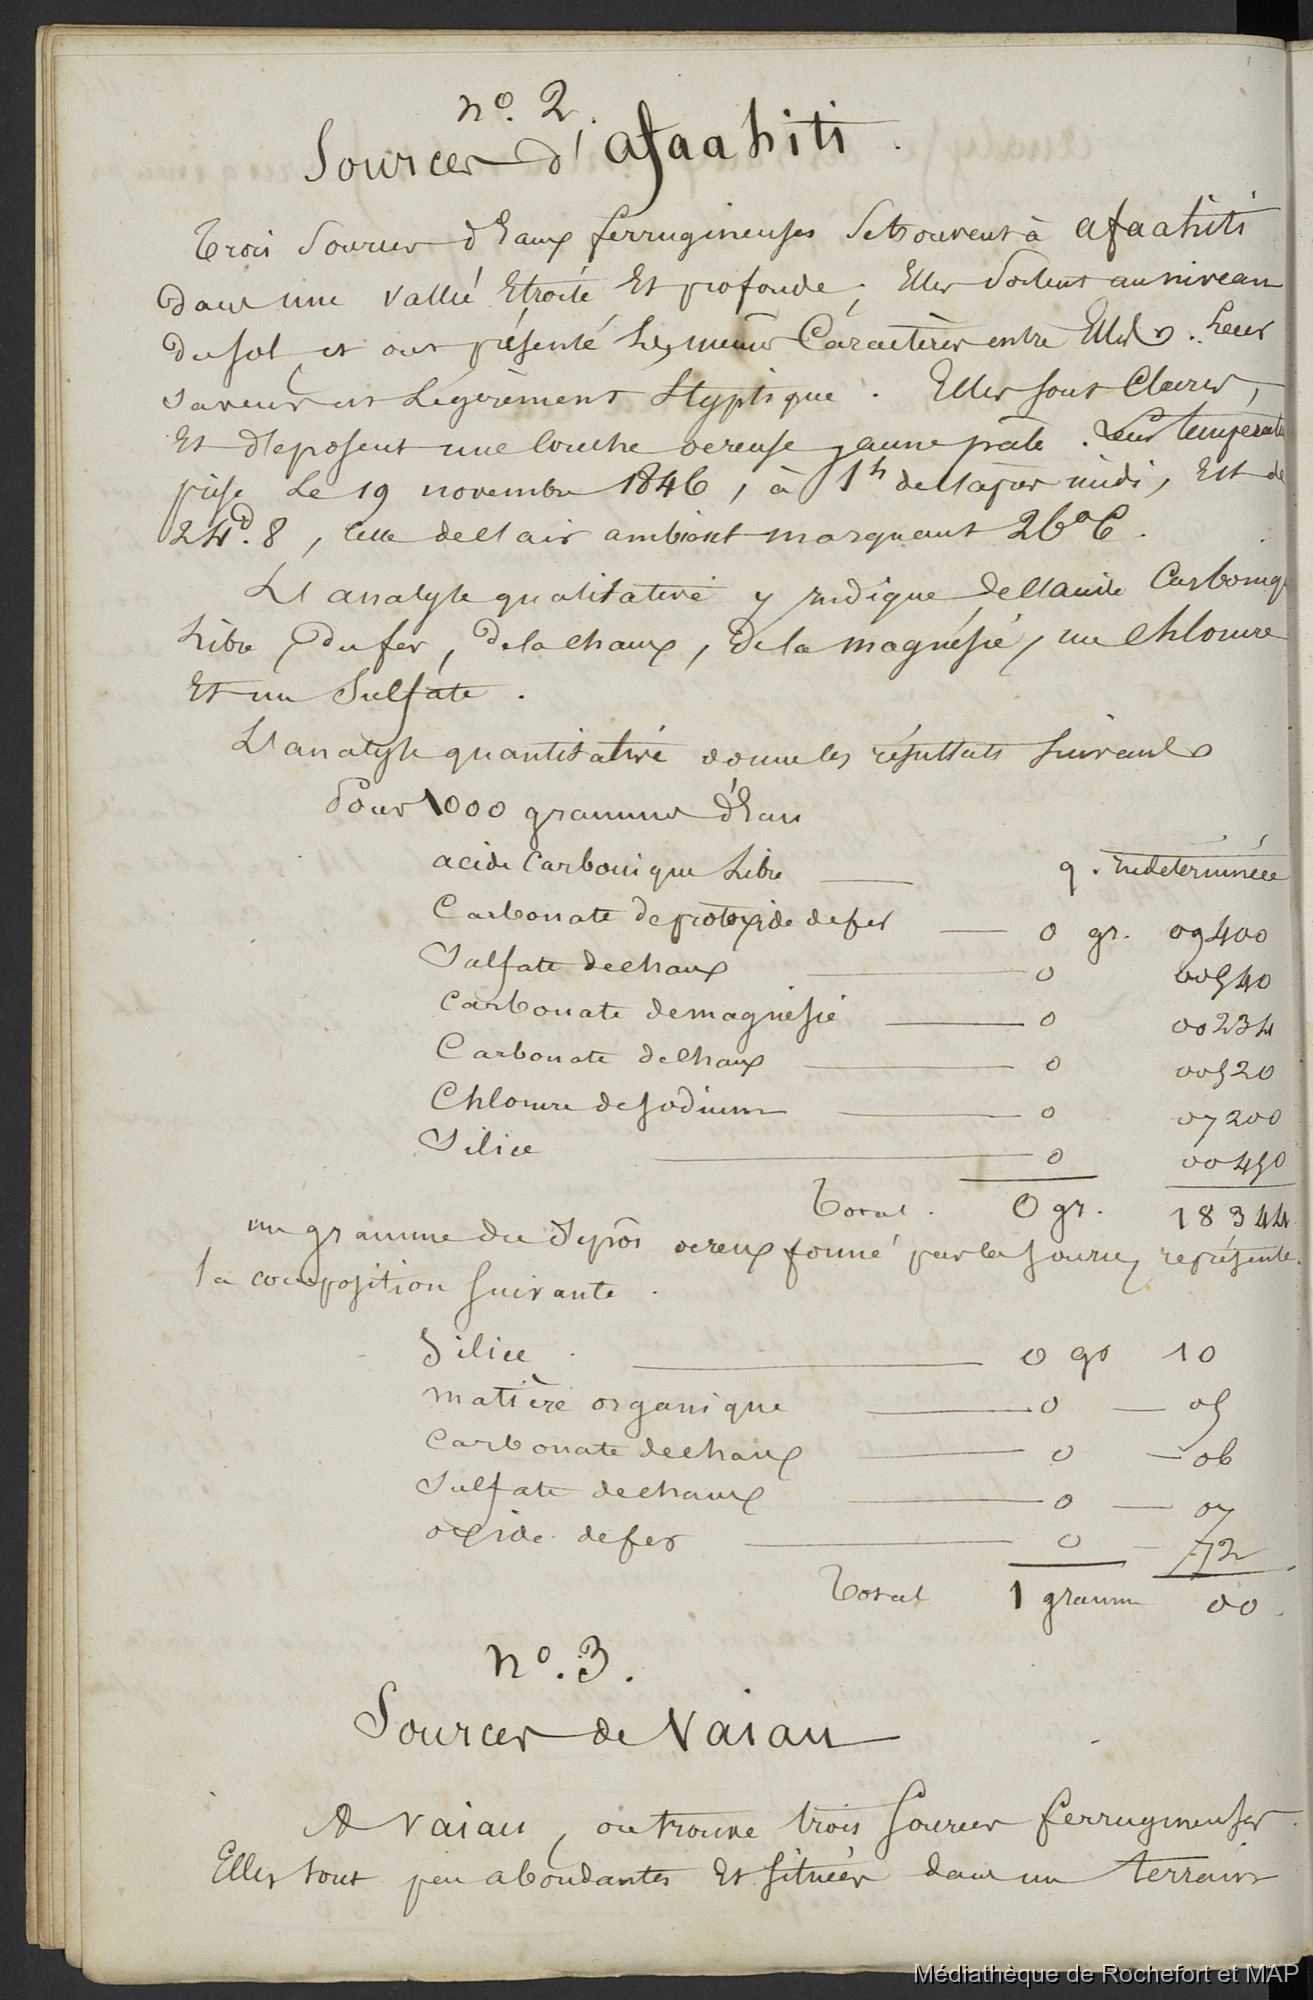 n° 2.
Sources d'afaahiti.
Trois sources d'Eaux ferrugineuses se trouvent à afaahiti
dans une vallée Etroite Et profonde; Elles sortent au niveau
du sol, et ont présenté les mêmes Caractères entre Elles. Leur
saveur est Légèrement Styptique. Elles sont Claires,
Et déposent une couche ocreuse jaune pâle. Leur températ
prise Le 19 novembre 1846, à 1h de l'après midi, Est de
24d.8, celle de l'air ambiant marquant 26°C.
L'analyse qualitative y indique de l'acide Carboniq
Libre, du fer, de la chaux, de la magnésie, un Chlorure
Et un Sulfate.
L'analyse quantitative donne les résultats suivants
Pour 1000 grammes d'Eau
acide Carbonique Libre — q. indéterminée
Carbonate de protoxide de fer — 0 gr. 09400
Sulfate de chaux — 0 00540
Carbonate de magnésie — 0 00234
Carbonate de chaux — 0 00520
Chlorure de sodium — 0 07200
Silice — 0 00450
Total. 0 gr. 18344
un gramme du dépôt ocreux formé par la source, représente
la composition suivante.
Silice. — 0 gr 10
matière organique — 0 — 05
Carbonate de chaux — 0 — 06
Sulfate de chaux — 0 — 07
oxide de fer — 0 — 72
Total 1 gramme 00.
n°. 3.
Sources de Vaiau
A Vaiau, on trouve trois sources ferrugineuses.
Elles sont peu abondantes Et situées dans un terrain
Médiathèque de Rochefort et MAP